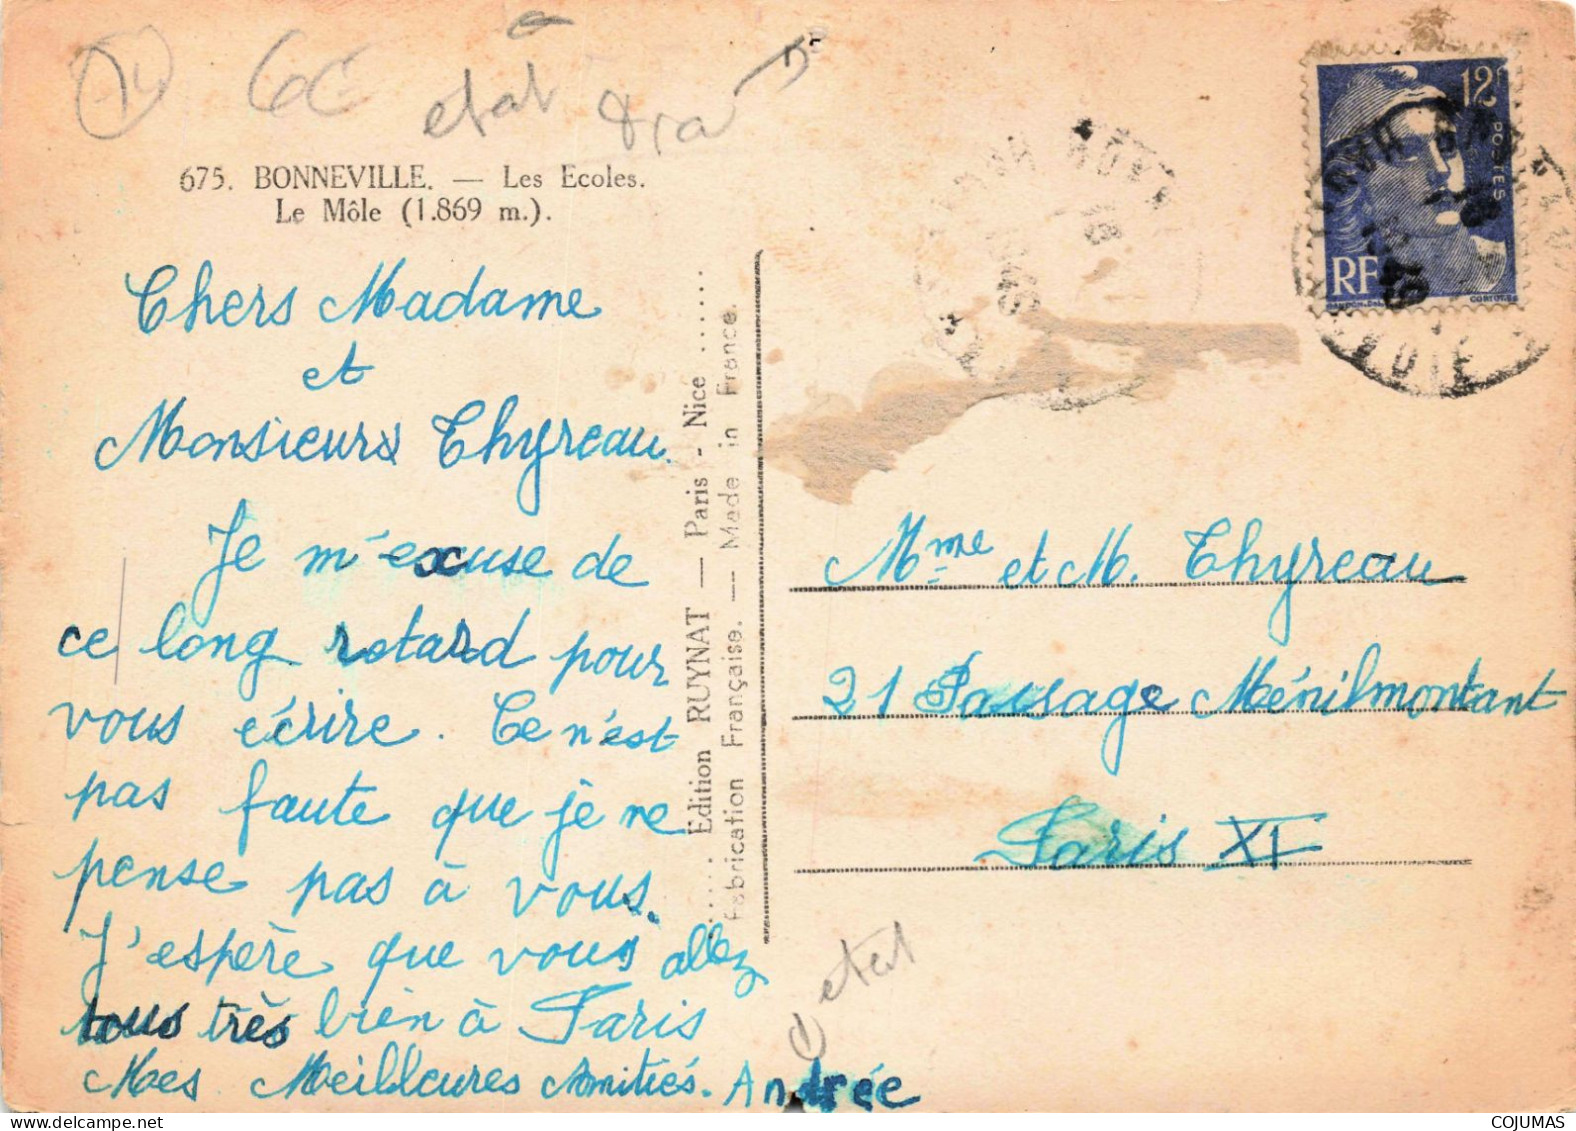 74
6€
état
675. BONNEVILLE. — Les Ecoles.
Le Môle (1.869 m.).
Chers Madame
et
Monsieurs Thyreau.
Je m'excuse de
ce long retard pour
vous écrire. Ce n'est
pas faute que je ne
pense pas à vous.
J'espère que vous allez
tous très bien à Paris
Mes Meilleures Amitiés. Andrée
..... Edition RUYNAT — Paris - Nice .....
Fabrication Française. — Made in France.
12F
POSTES
RF
Mme et M. Thyreau
21 Passage Ménilmontant
Paris XI
état
COJUMAS